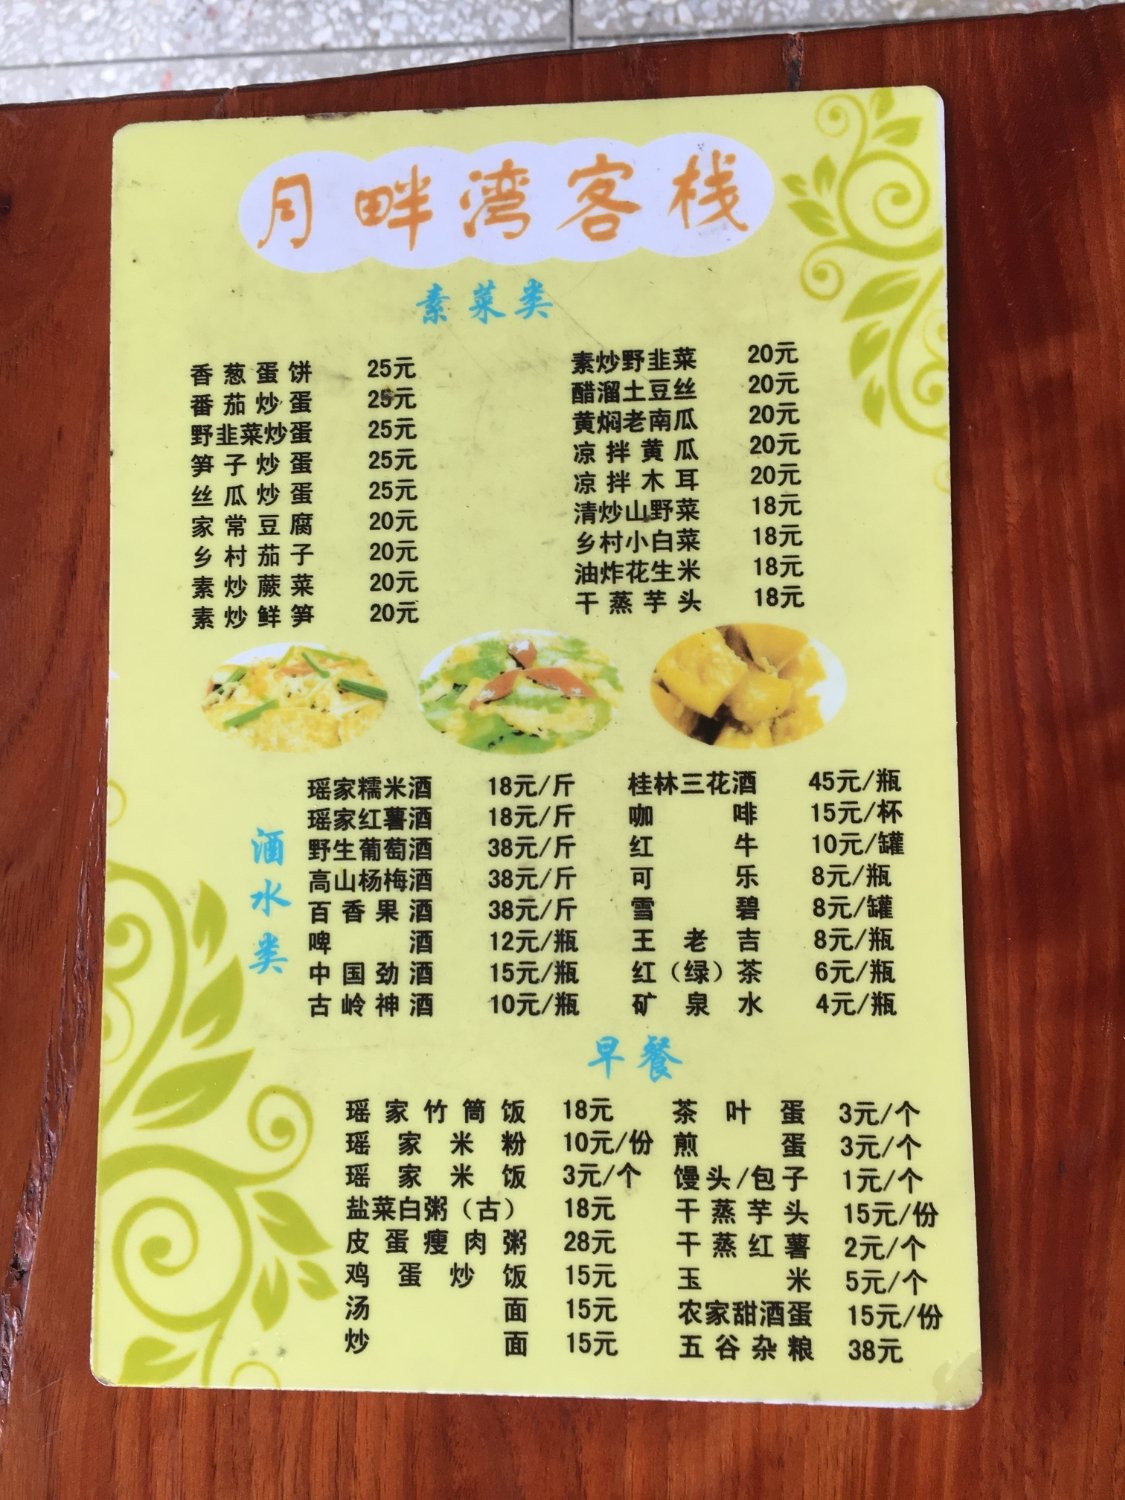 月畔湾客栈
素菜类
香葱蛋饼 25元
番茄炒蛋 25元
野韭菜炒蛋 25元
笋子炒蛋 25元
丝瓜炒蛋 25元
家常豆腐 20元
乡村茄子 20元
素炒蕨菜 20元
素炒鲜笋 20元
素炒野韭菜 20元
醋溜土豆丝 20元
黄焖老南瓜 20元
凉拌黄瓜 20元
凉拌木耳 20元
清炒山野菜 18元
乡村小白菜 18元
油炸花生米 18元
干蒸芋头 18元
酒水类
瑶家糯米酒 18元/斤
瑶家红薯酒 18元/斤
野生葡萄酒 38元/斤
高山杨梅酒 38元/斤
百香果酒 38元/斤
啤酒 12元/瓶
中国劲酒 15元/瓶
古岭神酒 10元/瓶
桂林三花酒 45元/瓶
咖啡 15元/杯
红牛 10元/罐
可乐 8元/瓶
雪碧 8元/罐
王老吉 8元/瓶
红（绿）茶 6元/瓶
矿泉水 4元/瓶
早餐
瑶家竹筒饭 18元
瑶家米粉 10元/份
瑶家米饭 3元/个
盐菜白粥（古） 18元
皮蛋瘦肉粥 28元
鸡蛋炒饭 15元
汤面 15元
炒面 15元
茶叶蛋 3元/个
煎蛋 3元/个
馒头/包子 1元/个
干蒸芋头 15元/份
干蒸红薯 2元/个
玉米 5元/个
农家甜酒蛋 15元/份
五谷杂粮 38元